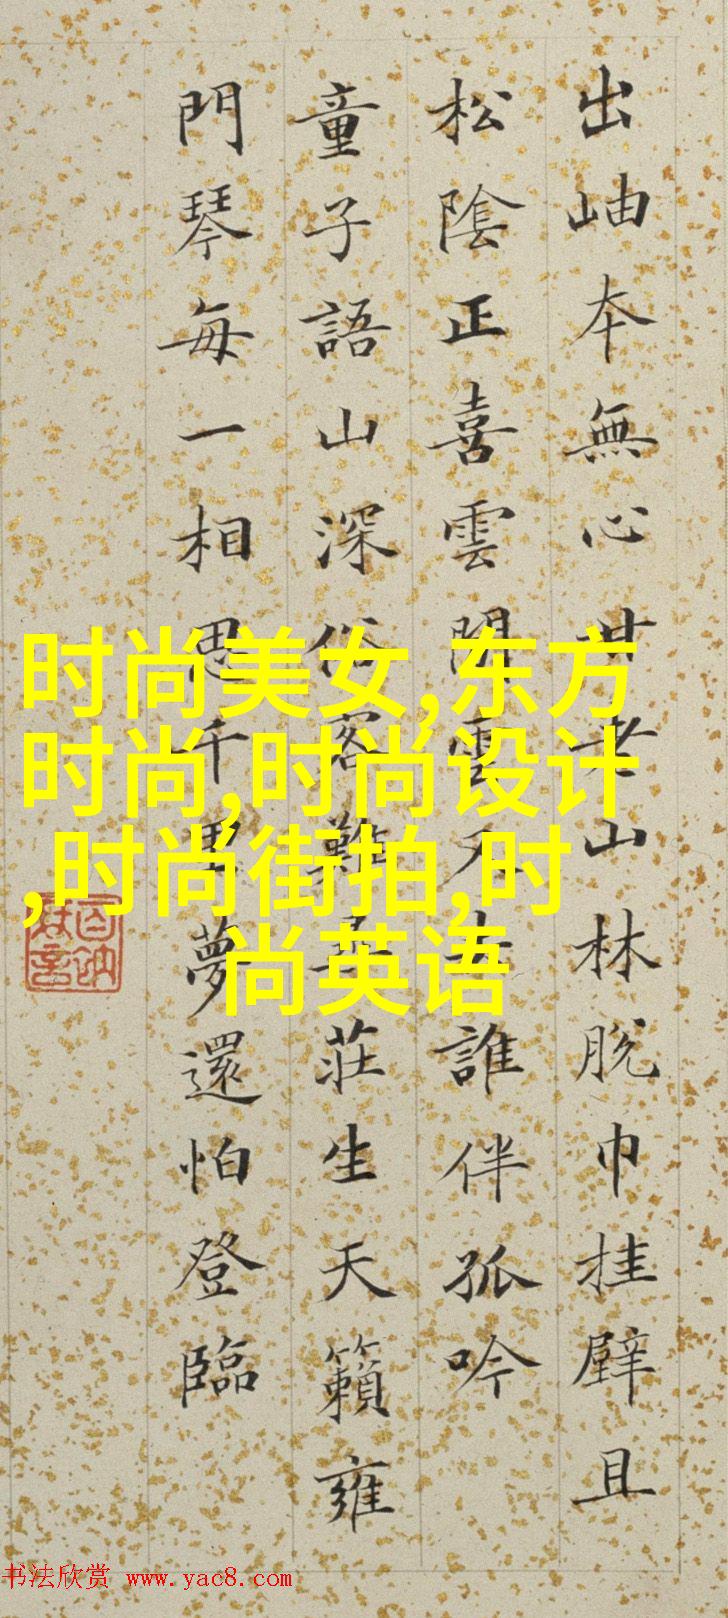 出岫本無心老山林脫巾挂壁且
松陰正喜雲雲誰伴孤吟
童子語山深俗客難尋莊生天籟雍
門琴每一相思千里夢還怕登臨
时尚美女,东方
时尚,时尚设计
,时尚街拍,时
尚英语
书法欣赏 www.yac8.com